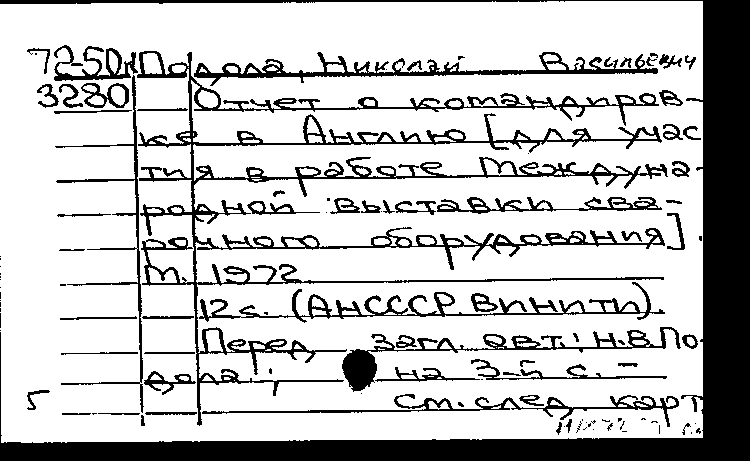 72-50к Подола, Николай Васильевич
3280 Отчет о командиров-
ке в Англию [для учас
тия в работе Междуна-
родной выставки сва-
рочного оборудования].
М. 1972
12 с. (АН СССР. ВИНИТИ).
Перед загл. авт.: Н.В. По-
дола; на 3-й с. -
5 см. след. карт.